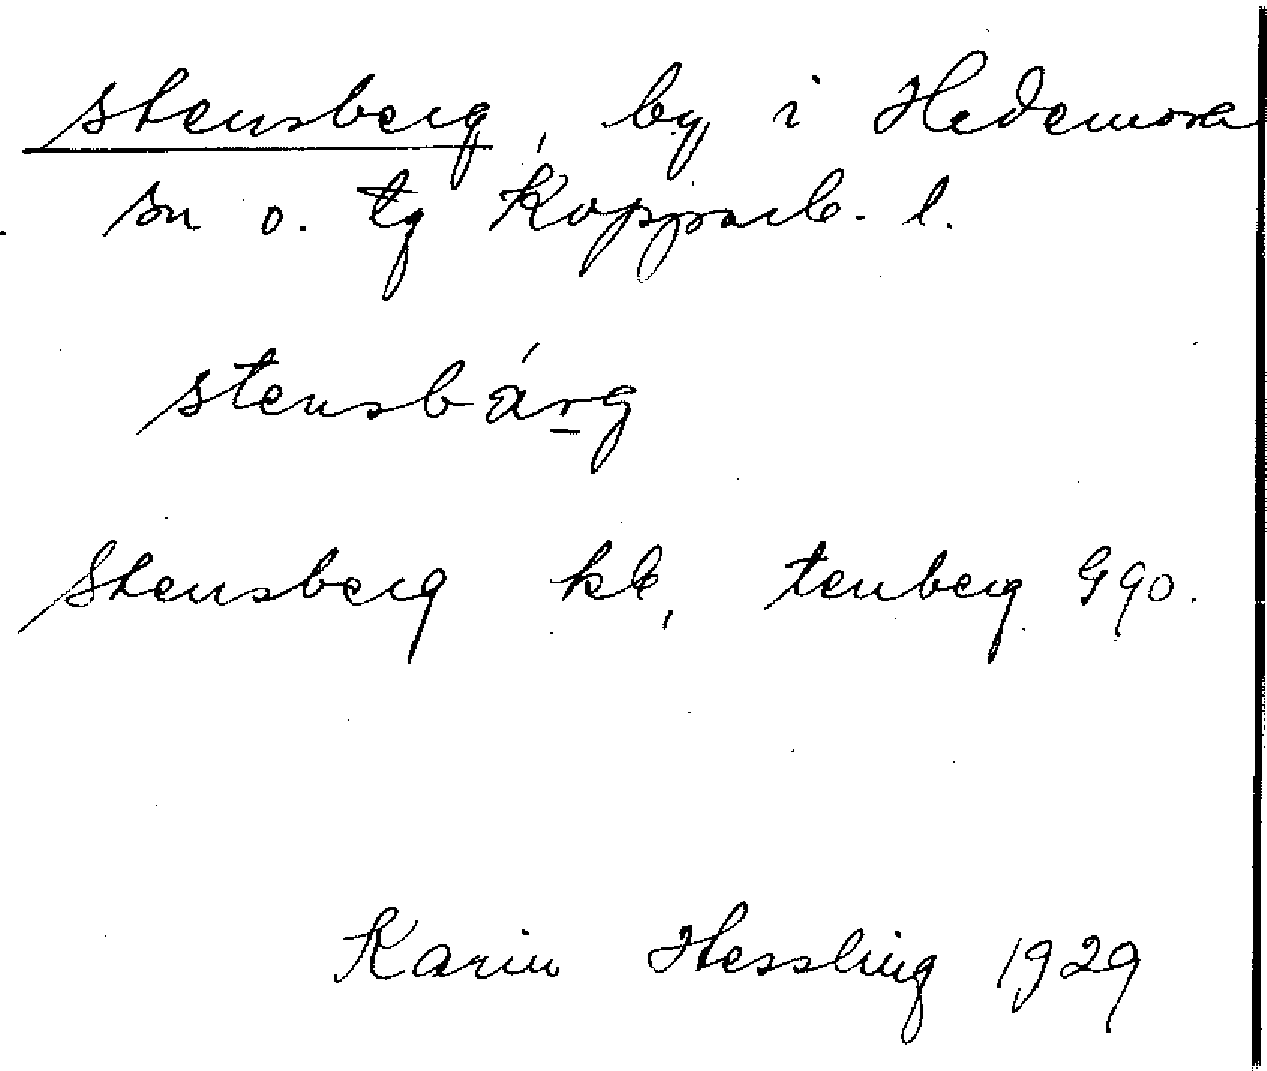 Stensberg, by i Hedemora
sn o. tg Kopparb. l.
stensbárg
Stensberg kb, tenberg Ggo.
Karin Hessling 1929